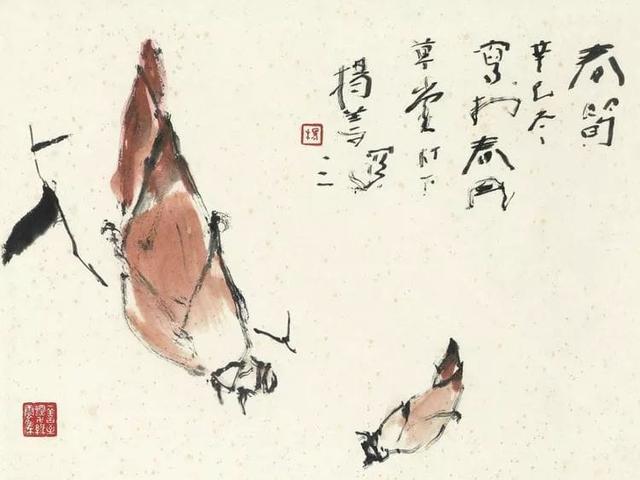 春筍
辛巳冬
寫於春風
草堂灯下
楊善深
楊